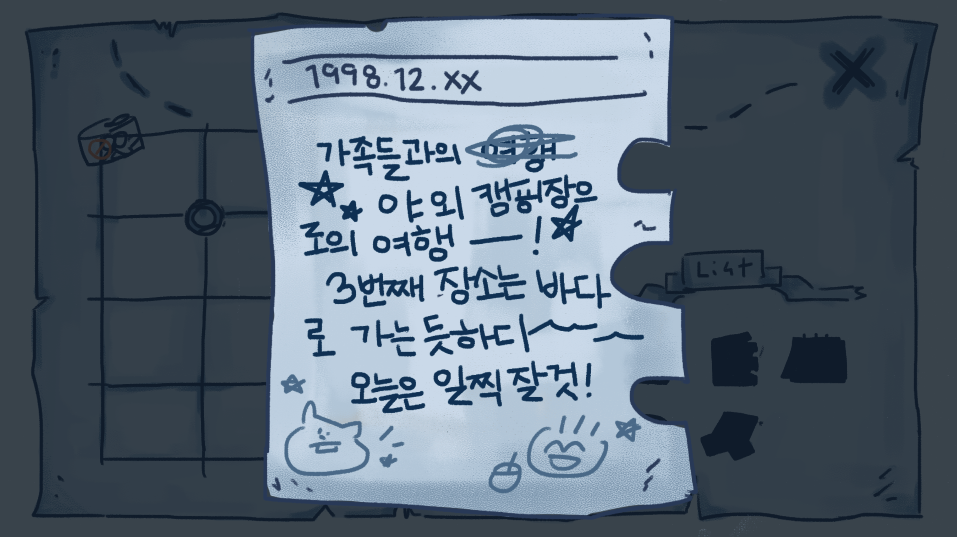 1998.12.XX
가족들과의 여행
야외 캠핑장으
로의 여행 ー!
3번째 장소는 바다
로 가는듯하다
오늘은 일찍 잘것!
List